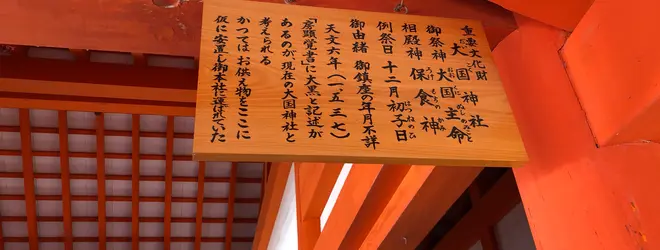 重要文化財
大国神社
御祭神 大国主命
相殿神 保食神
例祭日 十二月初子日
御由緒 御鎮座の年月不詳
天文六年(一五三七)
「房顕覚書」に大黒と記述が
あるのが現在の大国神社と
考えられる
かつてはお供え物をここに
仮に安置し御本社に運ばれていた